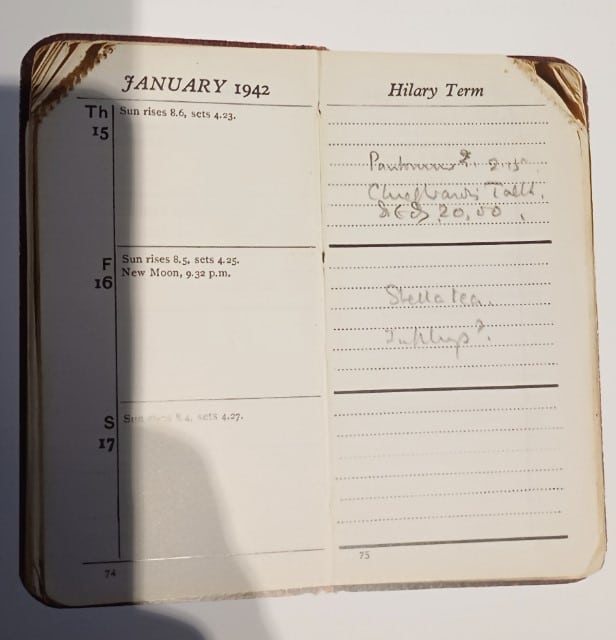 JANUARY 1942
Th 15
Sun rises 8.6, sets 4.23.
F 16
Sun rises 8.5, sets 4.25.
New Moon, 9.32 p.m.
S 17
Sun rises 8.4, sets 4.27.
74
Hilary Term
Talk.
20.00.
Stella tea.
75